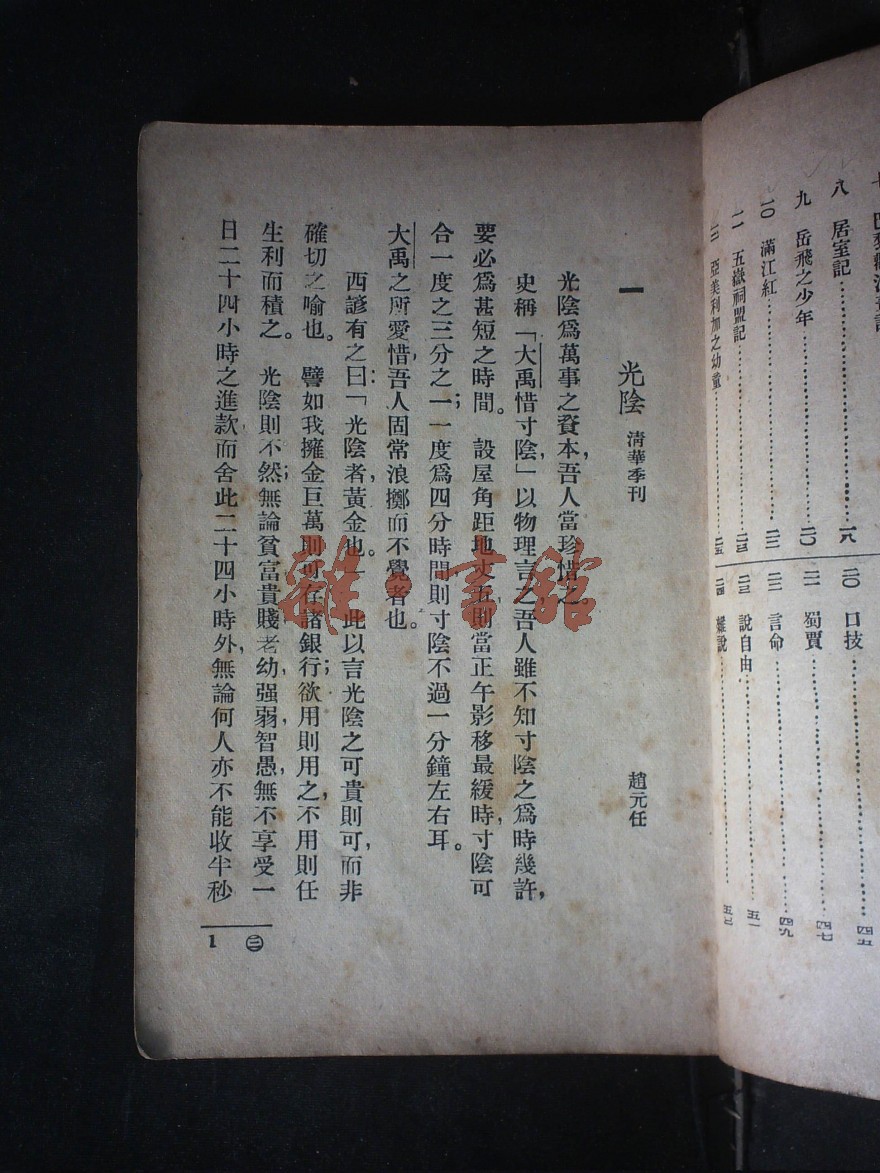 八 居室記……一八
九 岳飛之少年……二〇
一〇 滿江紅……二二
一一 五嶽祠盟記……二三
一二 亞美利加之幼童……二五
二〇 口技……四五
二一 蜀賈……四七
二二 言命……四九
二三 說自由……五一
二四 說……五七
一 光陰 清華季刊 趙元任
光陰爲萬事之資本,吾人當珍惜之。
史稱「大禹惜寸陰」以物理言之,吾人雖不知寸陰之爲時幾許,
要必爲甚短之時間。設屋角距地丈五,則當正午影移最緩時,寸陰可
合一度之三分之一;一度爲四分時間則寸陰不過一分鐘左右耳。
大禹之所愛惜,吾人固常浪擲而不覺者也。
西諺有之曰:「光陰者,黃金也。」此以言光陰之可貴則可,而非
確切之喻也。譬如我擁金巨萬則可存諸銀行;欲用則用之,不用則任
生利而積之。光陰則不然;無論貧富貴賤,老幼,强弱,智愚,無不享受一
日二十四小時之進款而舍此二十四小時外,無論何人亦不能收半秒
㊂ 1
雜·書館